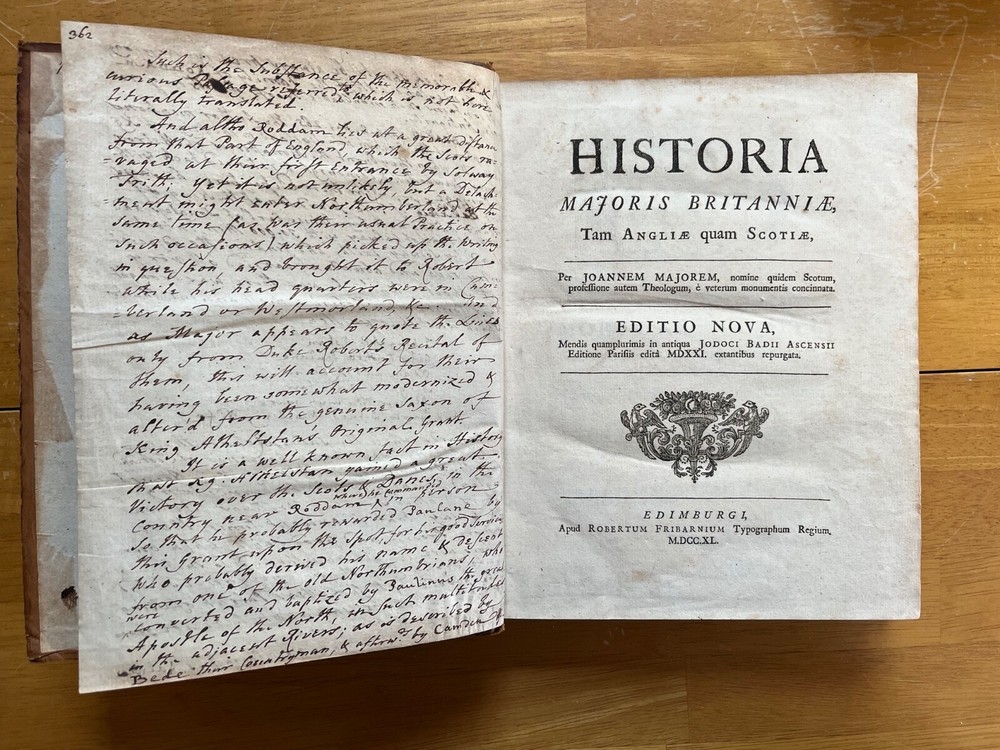 362
Such is the Substance of the memorable &
curious Passage referred to which is not here
literally translated.
And altho Roddam lies at a great distance
from that Part of England which the Scots ra-
=vaged at their first Entrance by Solway
Frith; Yet it is not unlikely but a Detach-
=ment might enter Northumberland at the
same time (as was their usual Practice on
such occasions) which picked up the Writing
in question and brought it to Robert
while his head quarters were in Cum-
=berland or Westmorland, &c. And
as Major appears to quote the Lines
only from Duke Robert's Recital of
them, this will account for their
having been somewhat modernized &
alter'd from the genuine Saxon of
King Athelstan's Original Grant.
It is a well known fact in History
that Kg. Athelstan gained a great
Victory over the Scots & Danes in the
Country near Roddam where he commanded in person
So that he probably rewarded Paulane by
this Grant upon the Spot, for his good Services
who probably derived his name & descent
from one of the old Northumbrians, who
were converted and baptized by Paulinus the great
Apostle of the North, in such multitudes
in the adjacent Rivers; as is described by
Bede their Countryman, & afterwds. by Camden
HISTORIA
MAJORIS BRITANNIÆ,
Tam ANGLIÆ quam SCOTIÆ,
Per JOANNEM MAJOREM, nomine quidem Scotum,
professione autem Theologum, è veterum monumentis concinnata.
EDITIO NOVA,
Mendis quamplurimis in antiqua JODOCI BADII ASCENSII
Editione Parisiis edita MDXXI. extantibus repurgata.
EDIMBURGI,
Apud ROBERTUM FRIBARNIUM Typographum Regium,
M.DCC.XL.